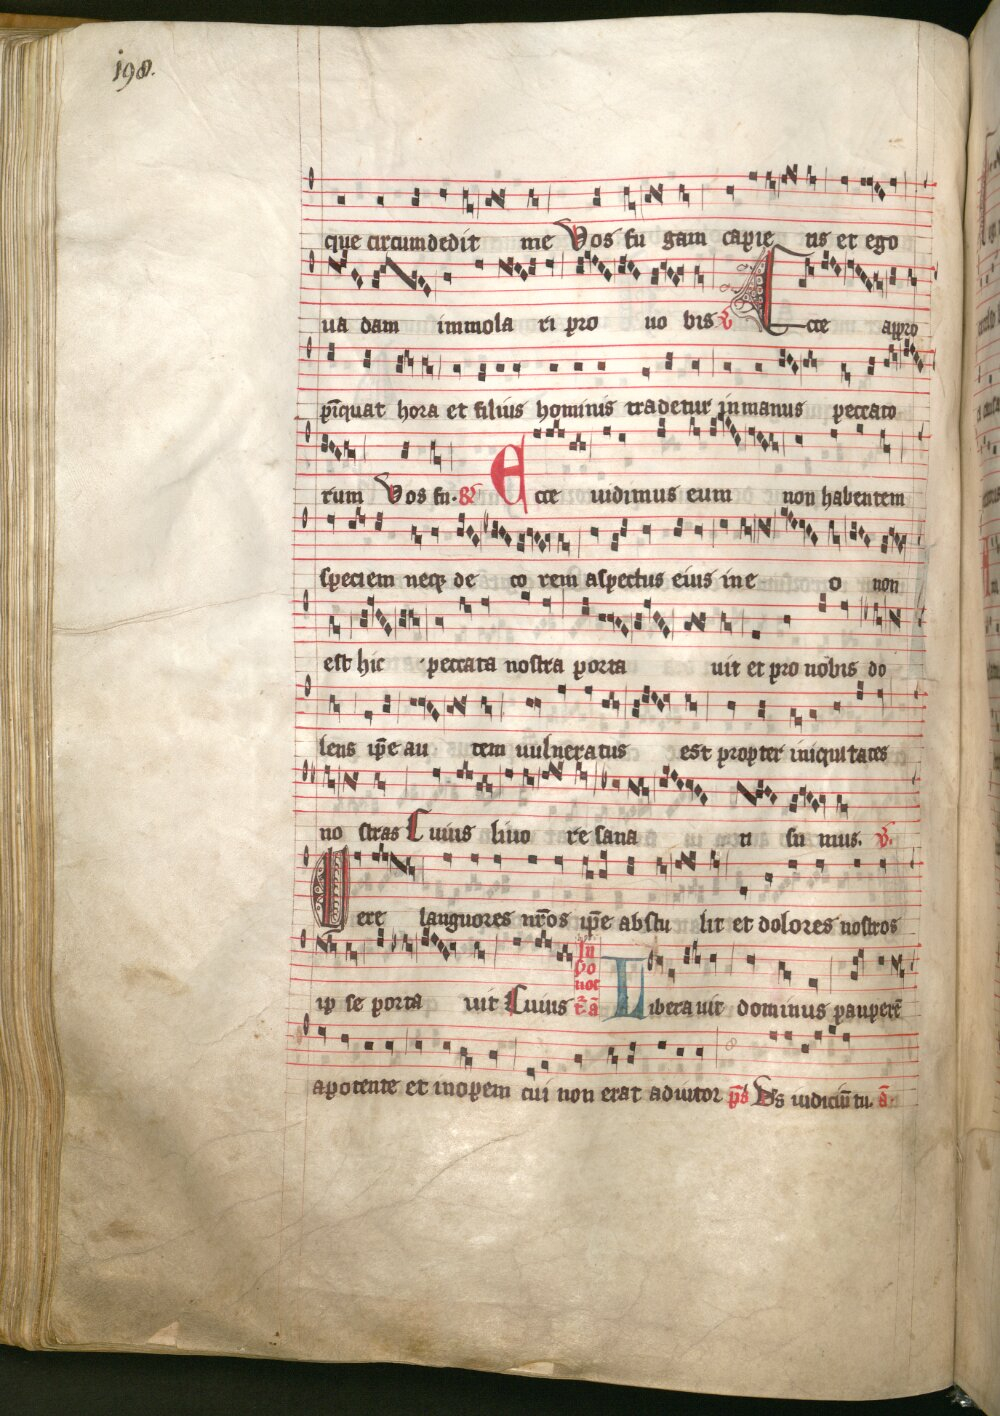 198.
que circumdedit me Vos fu gam capie tis et ego
ua dam immola ri pro uo bis ℣ Ecce appro
p̄iquat hora et filius hominis tradetur in manus peccato
rum Vos fu. ℟ Ecce uidimus eum non habentem
speciem neqꝫ de co rem aspectus eius in e o non
est hic peccata nostra porta uit et pro nobis do
lens ip̄e au tem uulneratus est propter iniquitates
no stras Cuius liuo re sana ti su mus. ℣.
Uere languores nr̄os ip̄e abstu lit et dolores nostros
ip se porta uit Cuius
Liberauit dominus pauperē
a potente et inopem cui non erat adiutor p̄s Ds iudiciū tu. ā